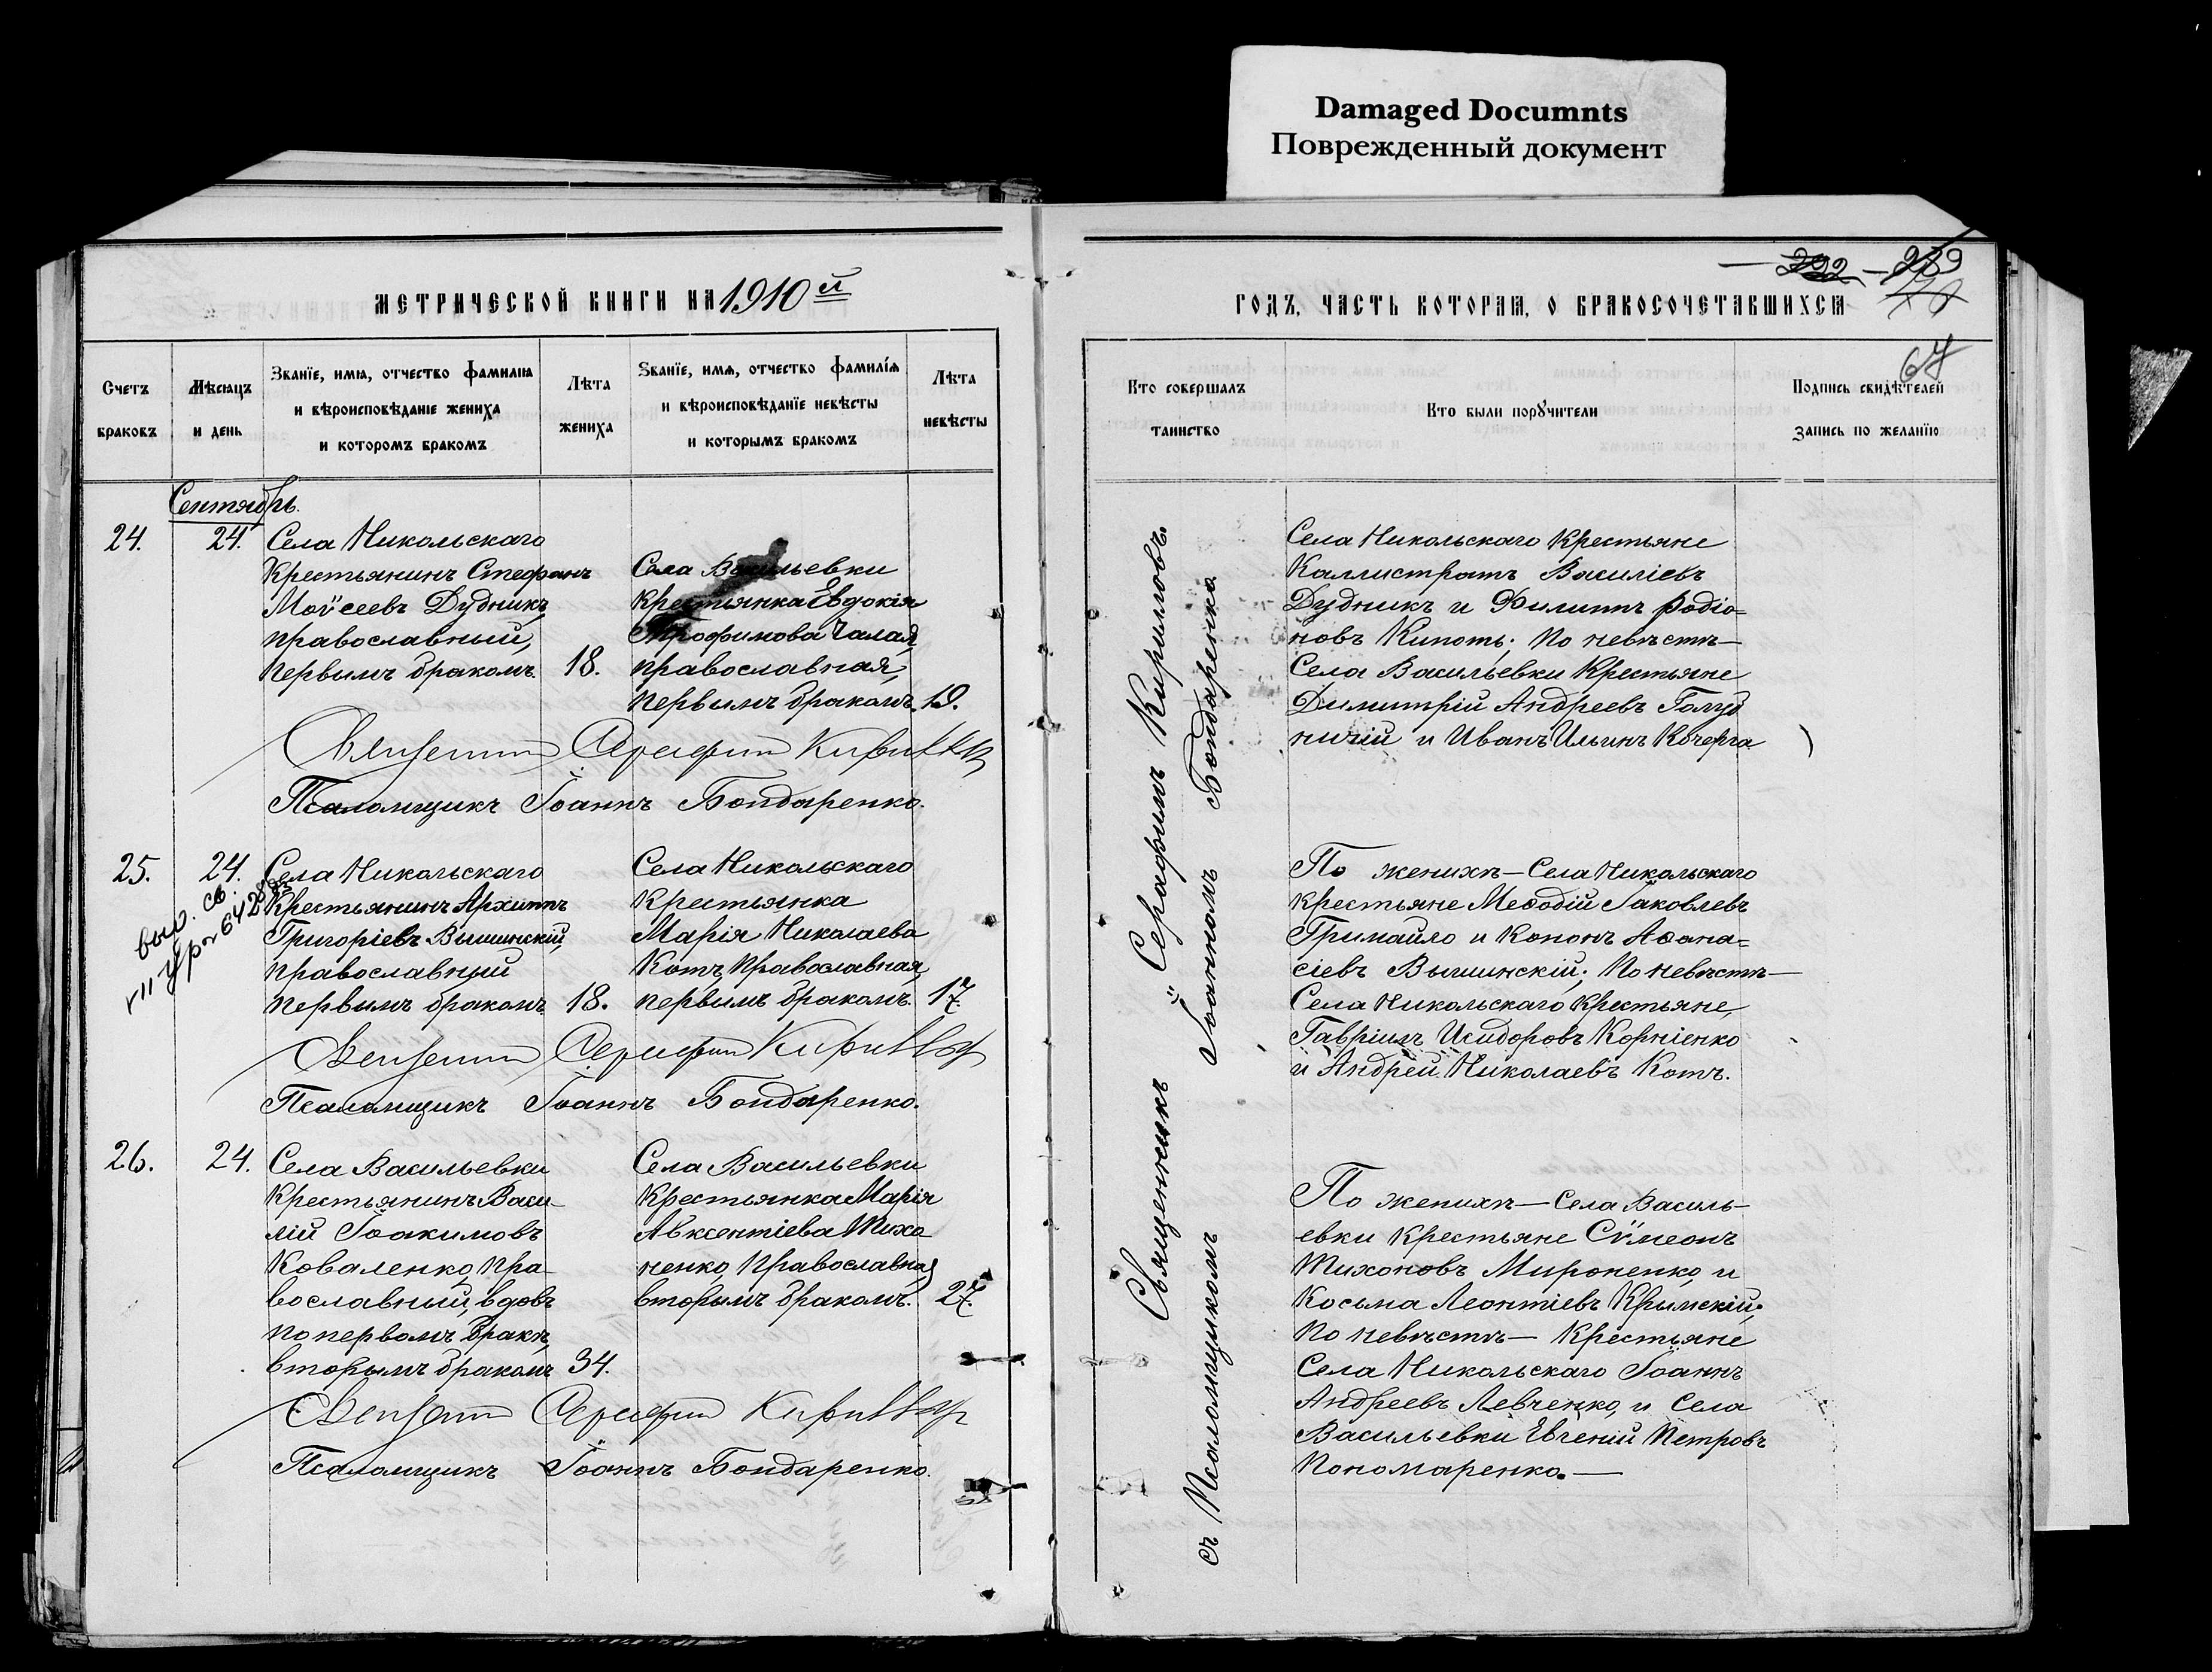 Damaged Documnts
Поврежденный документ
МЕТРИЧЕСКОЙ КНИГИ НА 1910 й
Счетъ
браковъ
Мѣсяцъ
и день
Званїе, имя, отчество фамилія
и вѣроисповѣданіе жениха
и которомъ бракомъ
Лѣта
жениха
Званїе, имя, отчество фамилїя
и вѣроисповѣданїе невѣсты
и которымъ бракомъ
Лѣта
невѣсты
Сентябрь.
24.
24.
Села Никольскаго
крестьянинъ Стефанъ
Моѵсеевъ Дудникъ,
православный,
первымъ бракомъ.
18.
Села Васильевки
крестьянка Евдокія
Трофимова Чалая,
православная,
первымъ бракомъ.
19.
Псаломщикъ Іоаннъ Бондаренко.
25.
24.
Села Никольскаго
Крестьянинъ Архиппъ
Григоріевъ Вышинскій,
православный
первымъ бракомъ
18.
Села Никольскаго
крестьянка
Марія Николаева
Котъ, православная,
первымъ бракомъ.
17.
выд. св.
Псаломщикъ Іоаннъ Бондаренко.
26.
24.
Села Васильевки
крестьянинъ Васи-
лій Іоакимовъ
Коваленко, пра-
вославный, вдовъ
по первомъ бракѣ,
вторымъ бракомъ
34.
Села Васильевки
крестьянка Марія
Авксентіева Тихо
ненко, православная
вторымъ бракомъ.
27.
Псаломщикъ Іоаннъ Бондаренко.
222 - 239
67
ГОДЪ, ЧАСТЬ КОТОРАЯ, О БРАКОСОЧЕТАВШИХСЯ
Кто совершалъ
таинство
Кто были порꙋчители
Подпись свидѣтелей
запись по желанїю
Священникъ Серафимъ Кириловъ
съ Псаломщикомъ Іоанномъ Бондаренко
Села Никольскаго крестьяне
Каллистратъ Василіевъ
Дудникъ и Филиппъ Родіо-
новъ Кипоть; по невѣстѣ-
Села Васильевки крестьяне
Димитрій Андреевъ Голуб
ничій и Иванъ Ильинъ Кочерга
По женихѣ - Села Никольскаго
крестьяне Меѳодій Іаковлевъ
Гримайло и Кононъ Аѳана=
сіевъ Вышинскій; по невѣстѣ-
Села Никольскаго крестьяне,
Гавріилъ Исидоровъ Корніенко
и Андрей Николаевъ Котъ.
По женихѣ - Села Василь-
евки крестьяне Сѵмеонъ
Тихоновъ Мироненко, и
Косьма Леонтіевъ Крымскій;
по невѣстѣ - крестьяне
Села Никольскаго Іоаннъ
Андреевъ Левченко, и Села
Васильевки Евгеній Петровъ
Пономаренко. -